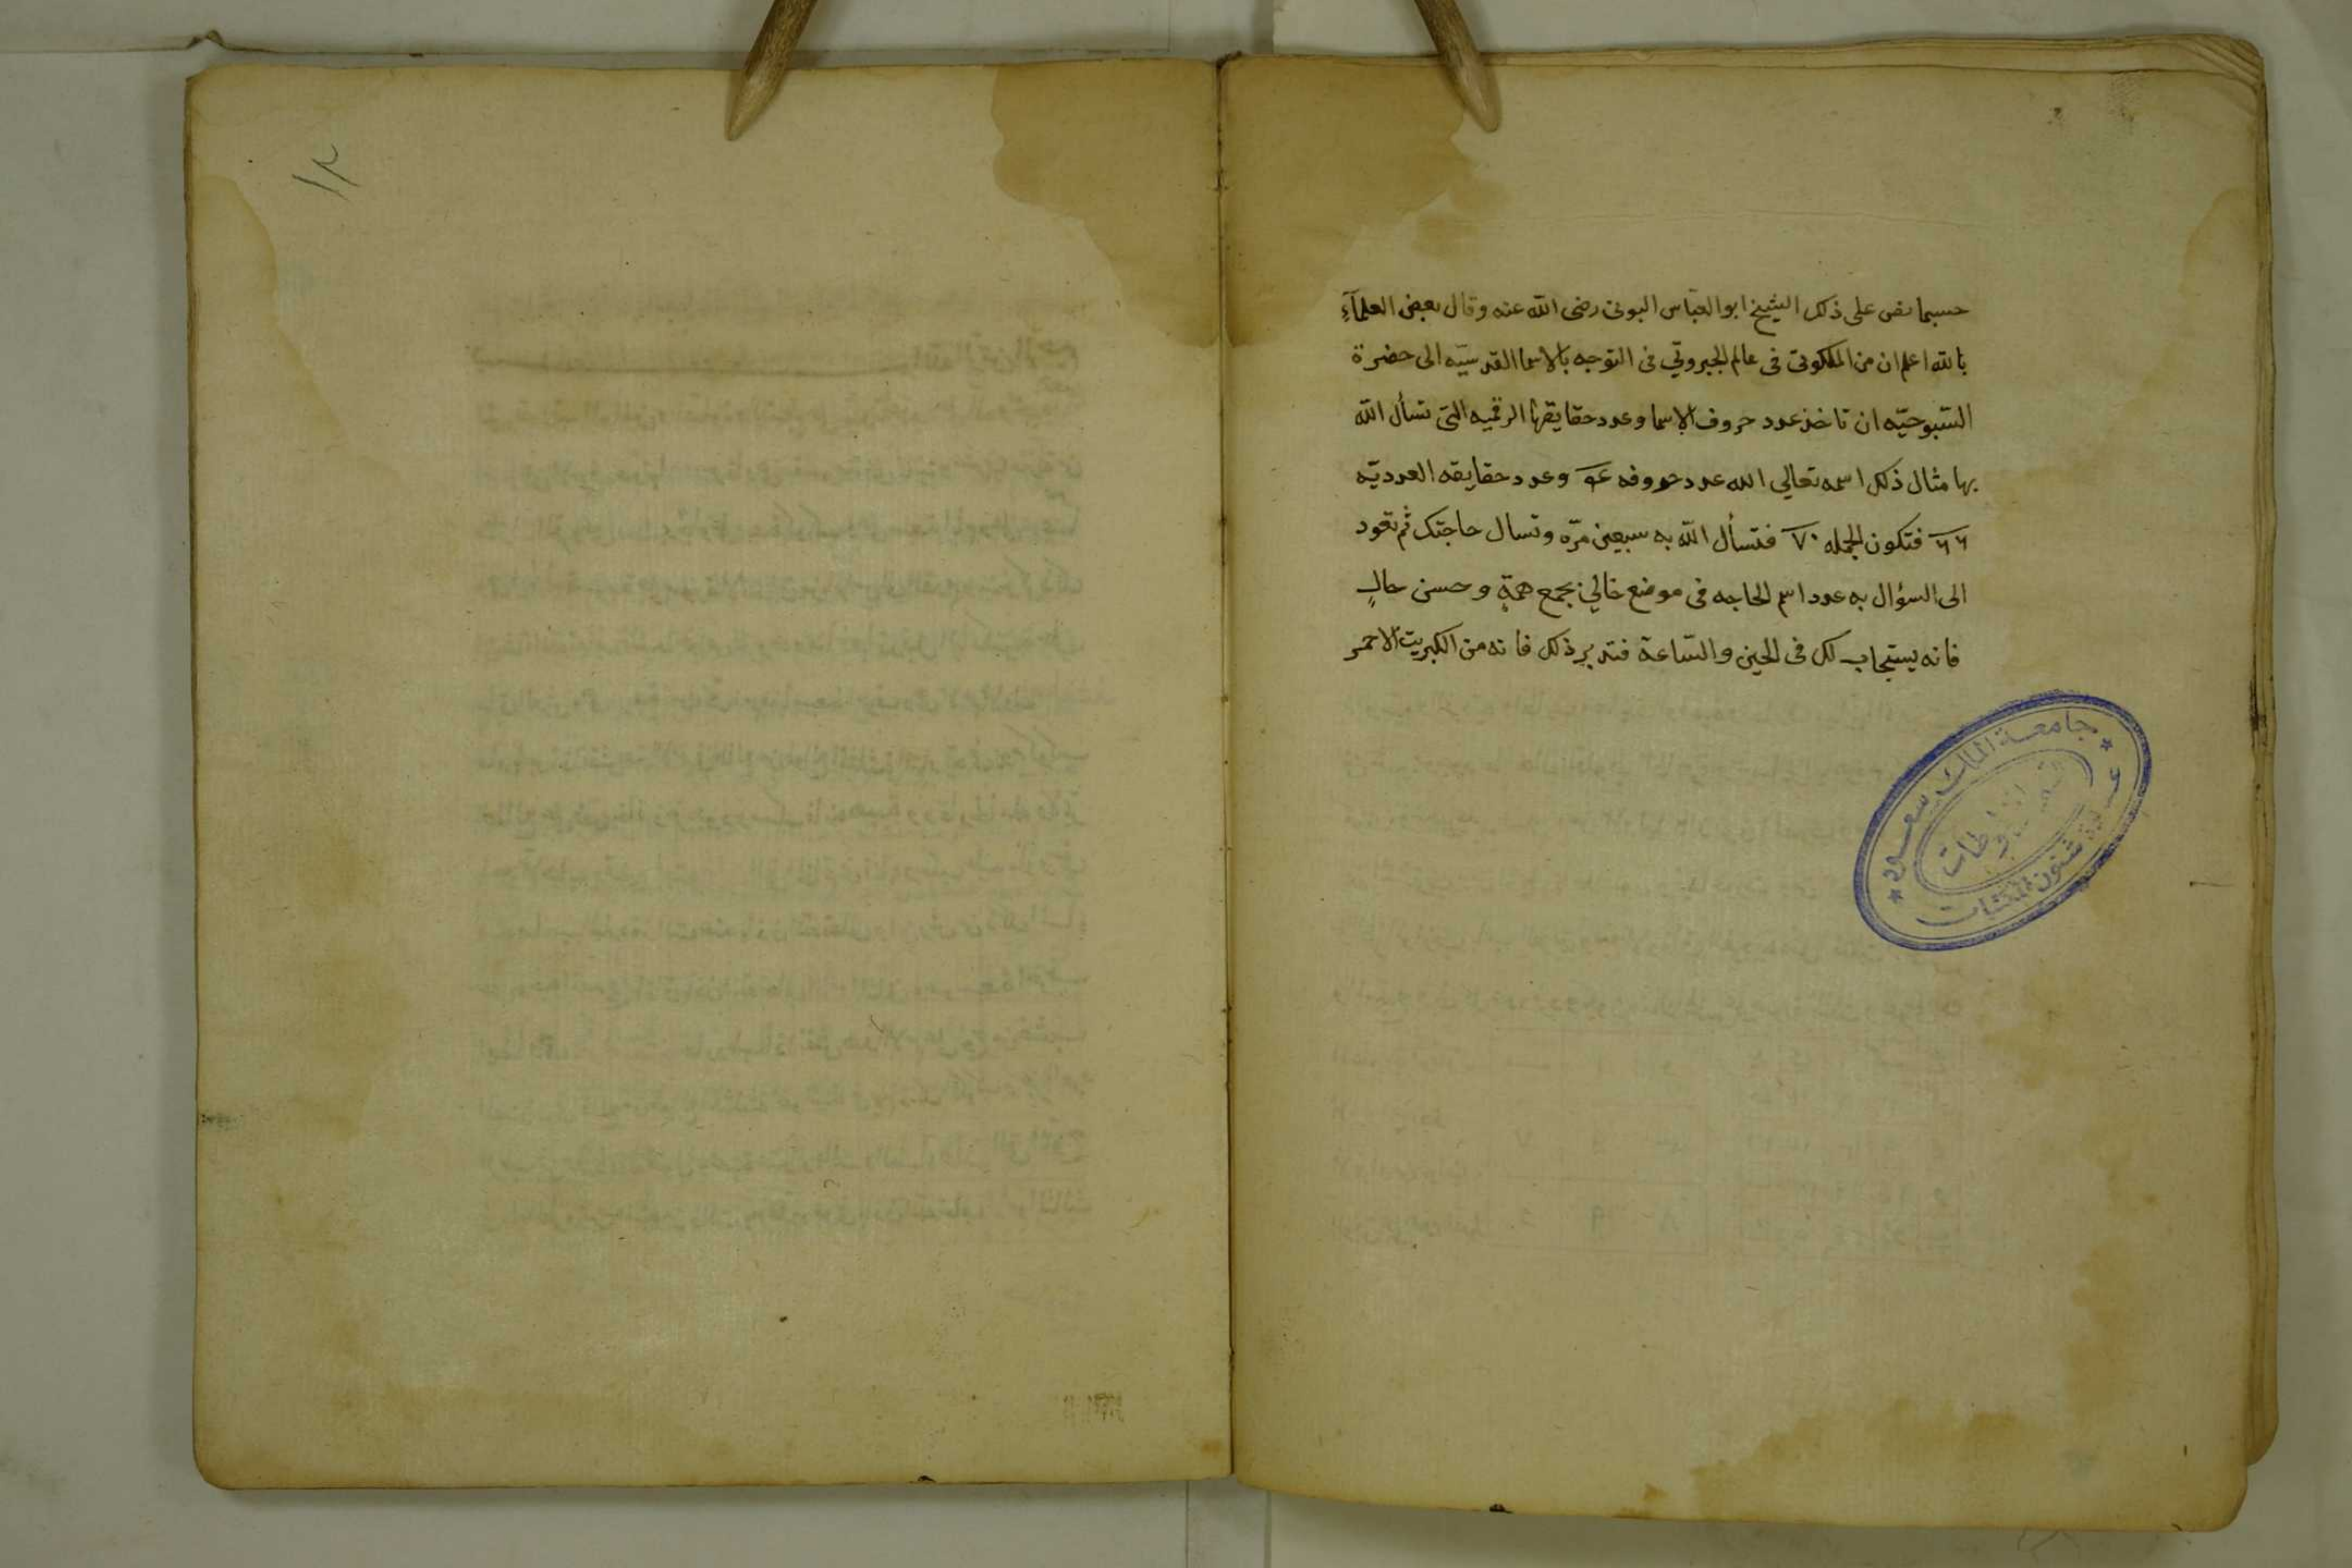 حسبما نص على ذلك الشيخ ابو العباس البونى رضى الله عنه وقال بعض العلمآءِ
بالله اعلم ان من الملكوتى فى عالم الجبروتي فى التوجه بالاسما القدسيّه الى حضرة
السّبوحيّه ان تاخذ عدد حروف الاسما وعدد حقايقها الرقميه التى تسأل الله
بها مثال ذلك اسمه تعالي الله عدد حروفه وعدد حقايقه العدديّه
٦٦ فتكون الجمله ٧٠ فتسأل الله به سبعين مرّه وتسال حاجتك ثم تعود
الى السؤال به عدد اسم الحاجه فى موضع خالي بجمع همةٍ وحسن حالٍ
فانه يستجاب لك فى الحين والسّاعة فتدبر ذلك فانه من الكبريت الاحمر
جامعة الملك سعود
عمادة شئون المكتبات
١٢